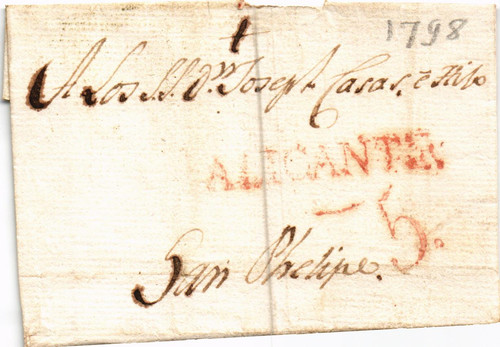 1798
A Los S.S. Dn. Joseph Casas, e Hijo
ALICANTE
5.
San Phelipe.